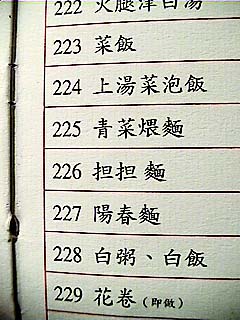 222 火腿津白湯
223 菜飯
224 上湯菜泡飯
225 青菜煨麵
226 担担麵
227 陽春麵
228 白粥、白飯
229 花卷(即做)